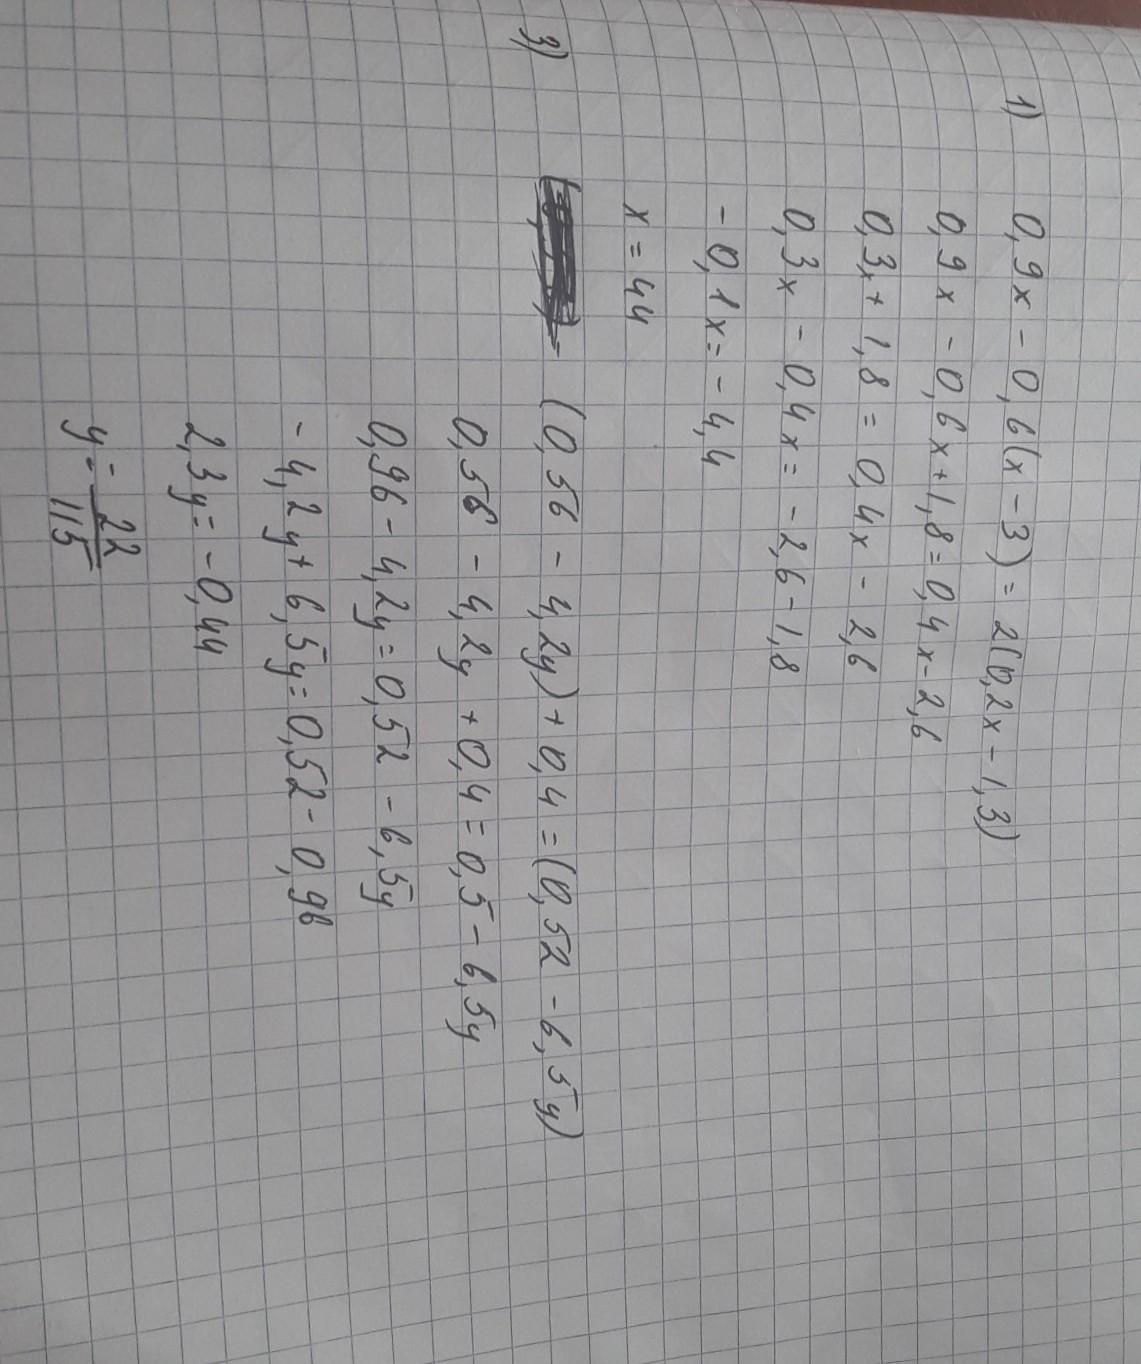 1) 0,9x - 0,6(x - 3) = 2(0,2x - 1,3)
0,9x - 0,6x + 1,8 = 0,4x - 2,6
0,3x + 1,8 = 0,4x - 2,6
0,3x - 0,4x = - 2,6 - 1,8
- 0,1x = - 4,4
x = 44
3) (0,56 - 4,2y) + 0,4 = (0,52 - 6,5y)
0,56 - 4,2y + 0,4 = 0,5 - 6,5y
0,96 - 4,2y = 0,52 - 6,5y
- 4,2y + 6,5y = 0,52 - 0,96
2,3y = - 0,44
y = - 22/115